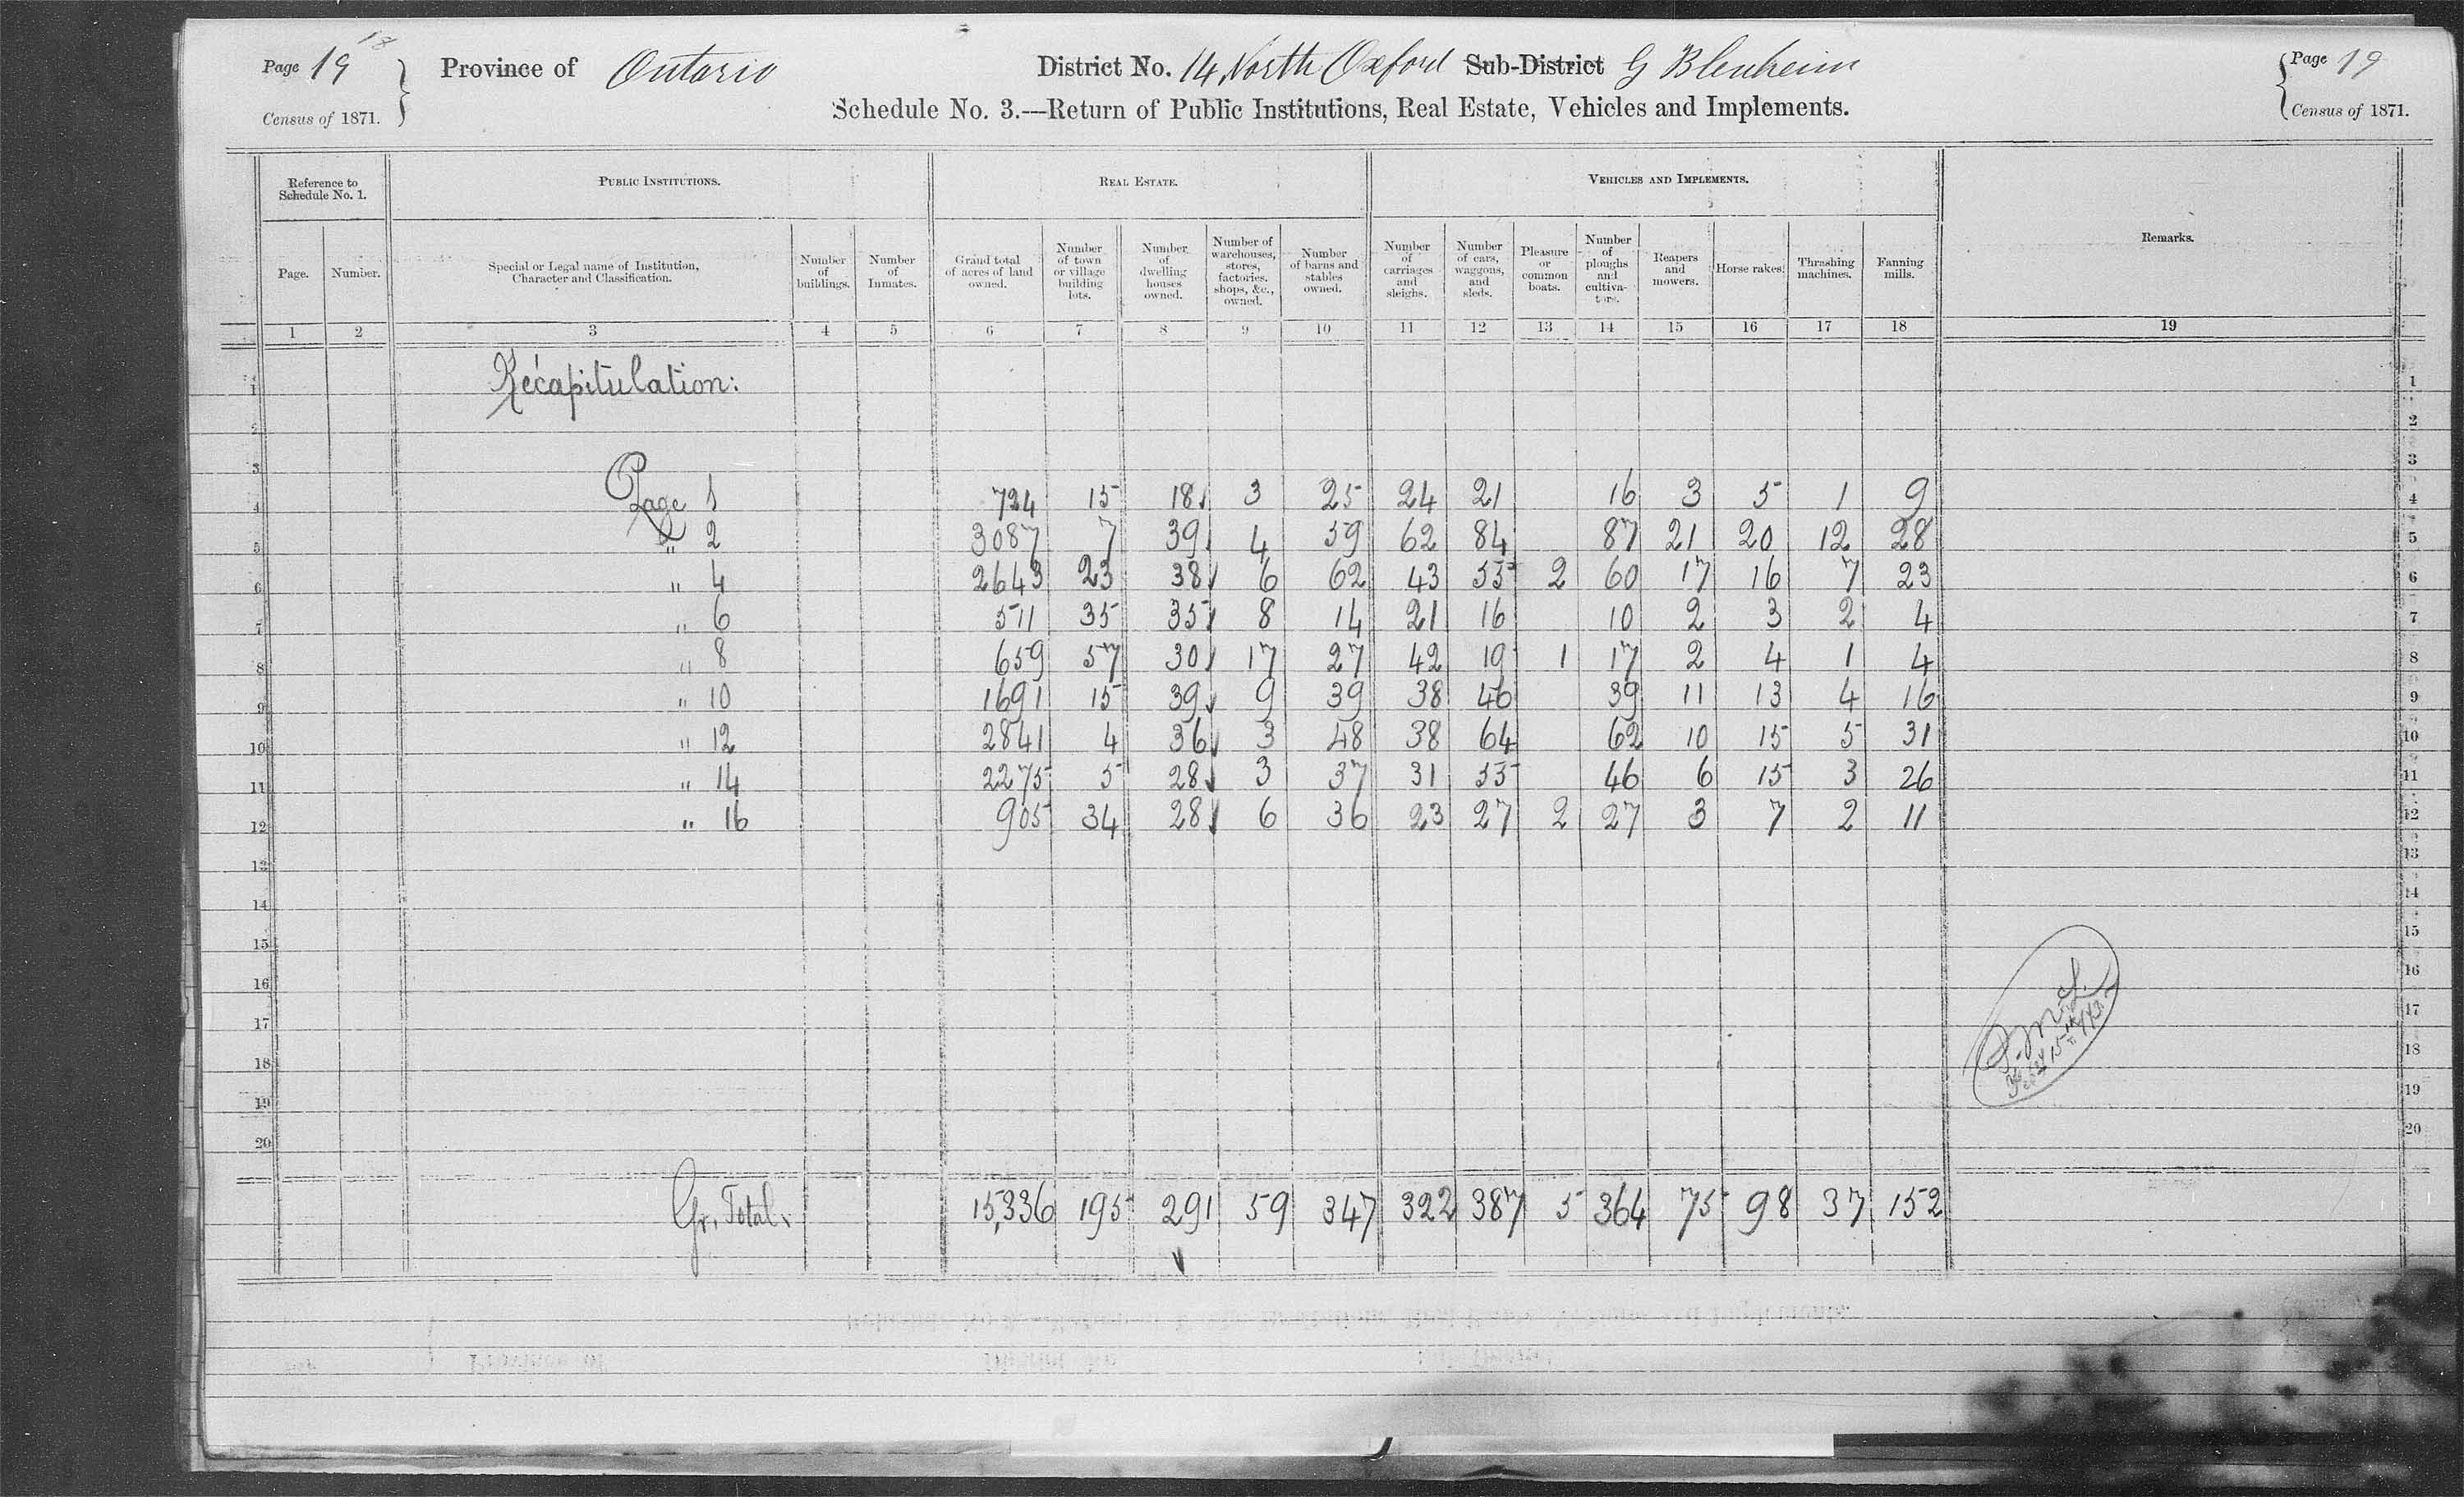 Page 19 18 Province of Ontario District No. 14, North Oxford Sub-District G Blenheim Page 19
Census of 1871. Schedule No. 3.---Return of Public Institutions, Real Estate, Vehicles and Implements. Census of 1871.
Reference to Schedule No. 1. PUBLIC INSTITUTIONS. REAL ESTATE. VEHICLES AND IMPLEMENTS. Remarks.
Page. Number. Special or Legal name of Institution, Character and Classification. Number of buildings. Number of Inmates. Grand total of acres of land owned. Number of town or village building lots. Number of dwelling houses owned. Number of warehouses, stores, factories, shops, &c., owned. Number of barns and stables owned. Number of carriages and sleighs. Number of cars, waggons, and sleds. Pleasure or common boats. Number of ploughs and cultivators. Reapers and mowers. Horse rakes. Thrashing machines. Fanning mills.
1 2 3 4 5 6 7 8 9 10 11 12 13 14 15 16 17 18 19
1 Récapitulation: 1
2 2
3 3
4 Page 1 724 15 18 3 25 24 21 16 3 5 1 9 4
5 " 2 3087 7 39 4 59 62 84 87 21 20 12 28 5
6 " 4 2643 23 38 6 62 43 55 2 60 17 16 7 23 6
7 " 6 511 35 35 8 14 21 16 10 2 3 2 4 7
8 " 8 659 57 30 17 27 42 19 1 17 2 4 1 4 8
9 " 10 1691 15 39 9 39 38 46 39 11 13 4 16 9
10 " 12 2841 4 36 3 48 38 64 62 10 15 5 31 10
11 " 14 2275 5 28 3 37 31 55 46 6 15 3 26 11
12 " 16 905 34 28 6 36 23 27 2 27 3 7 2 11 12
13 13
14 14
15 15
16 16
17 17
18 18
19 19
20 20
Gr. Total. 15,336 195 291 59 347 322 387 5 364 75 98 37 152